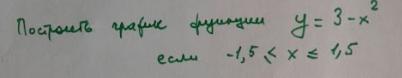 Построить график функции y = 3 - x²
если -1,5 ≤ x ≤ 1,5